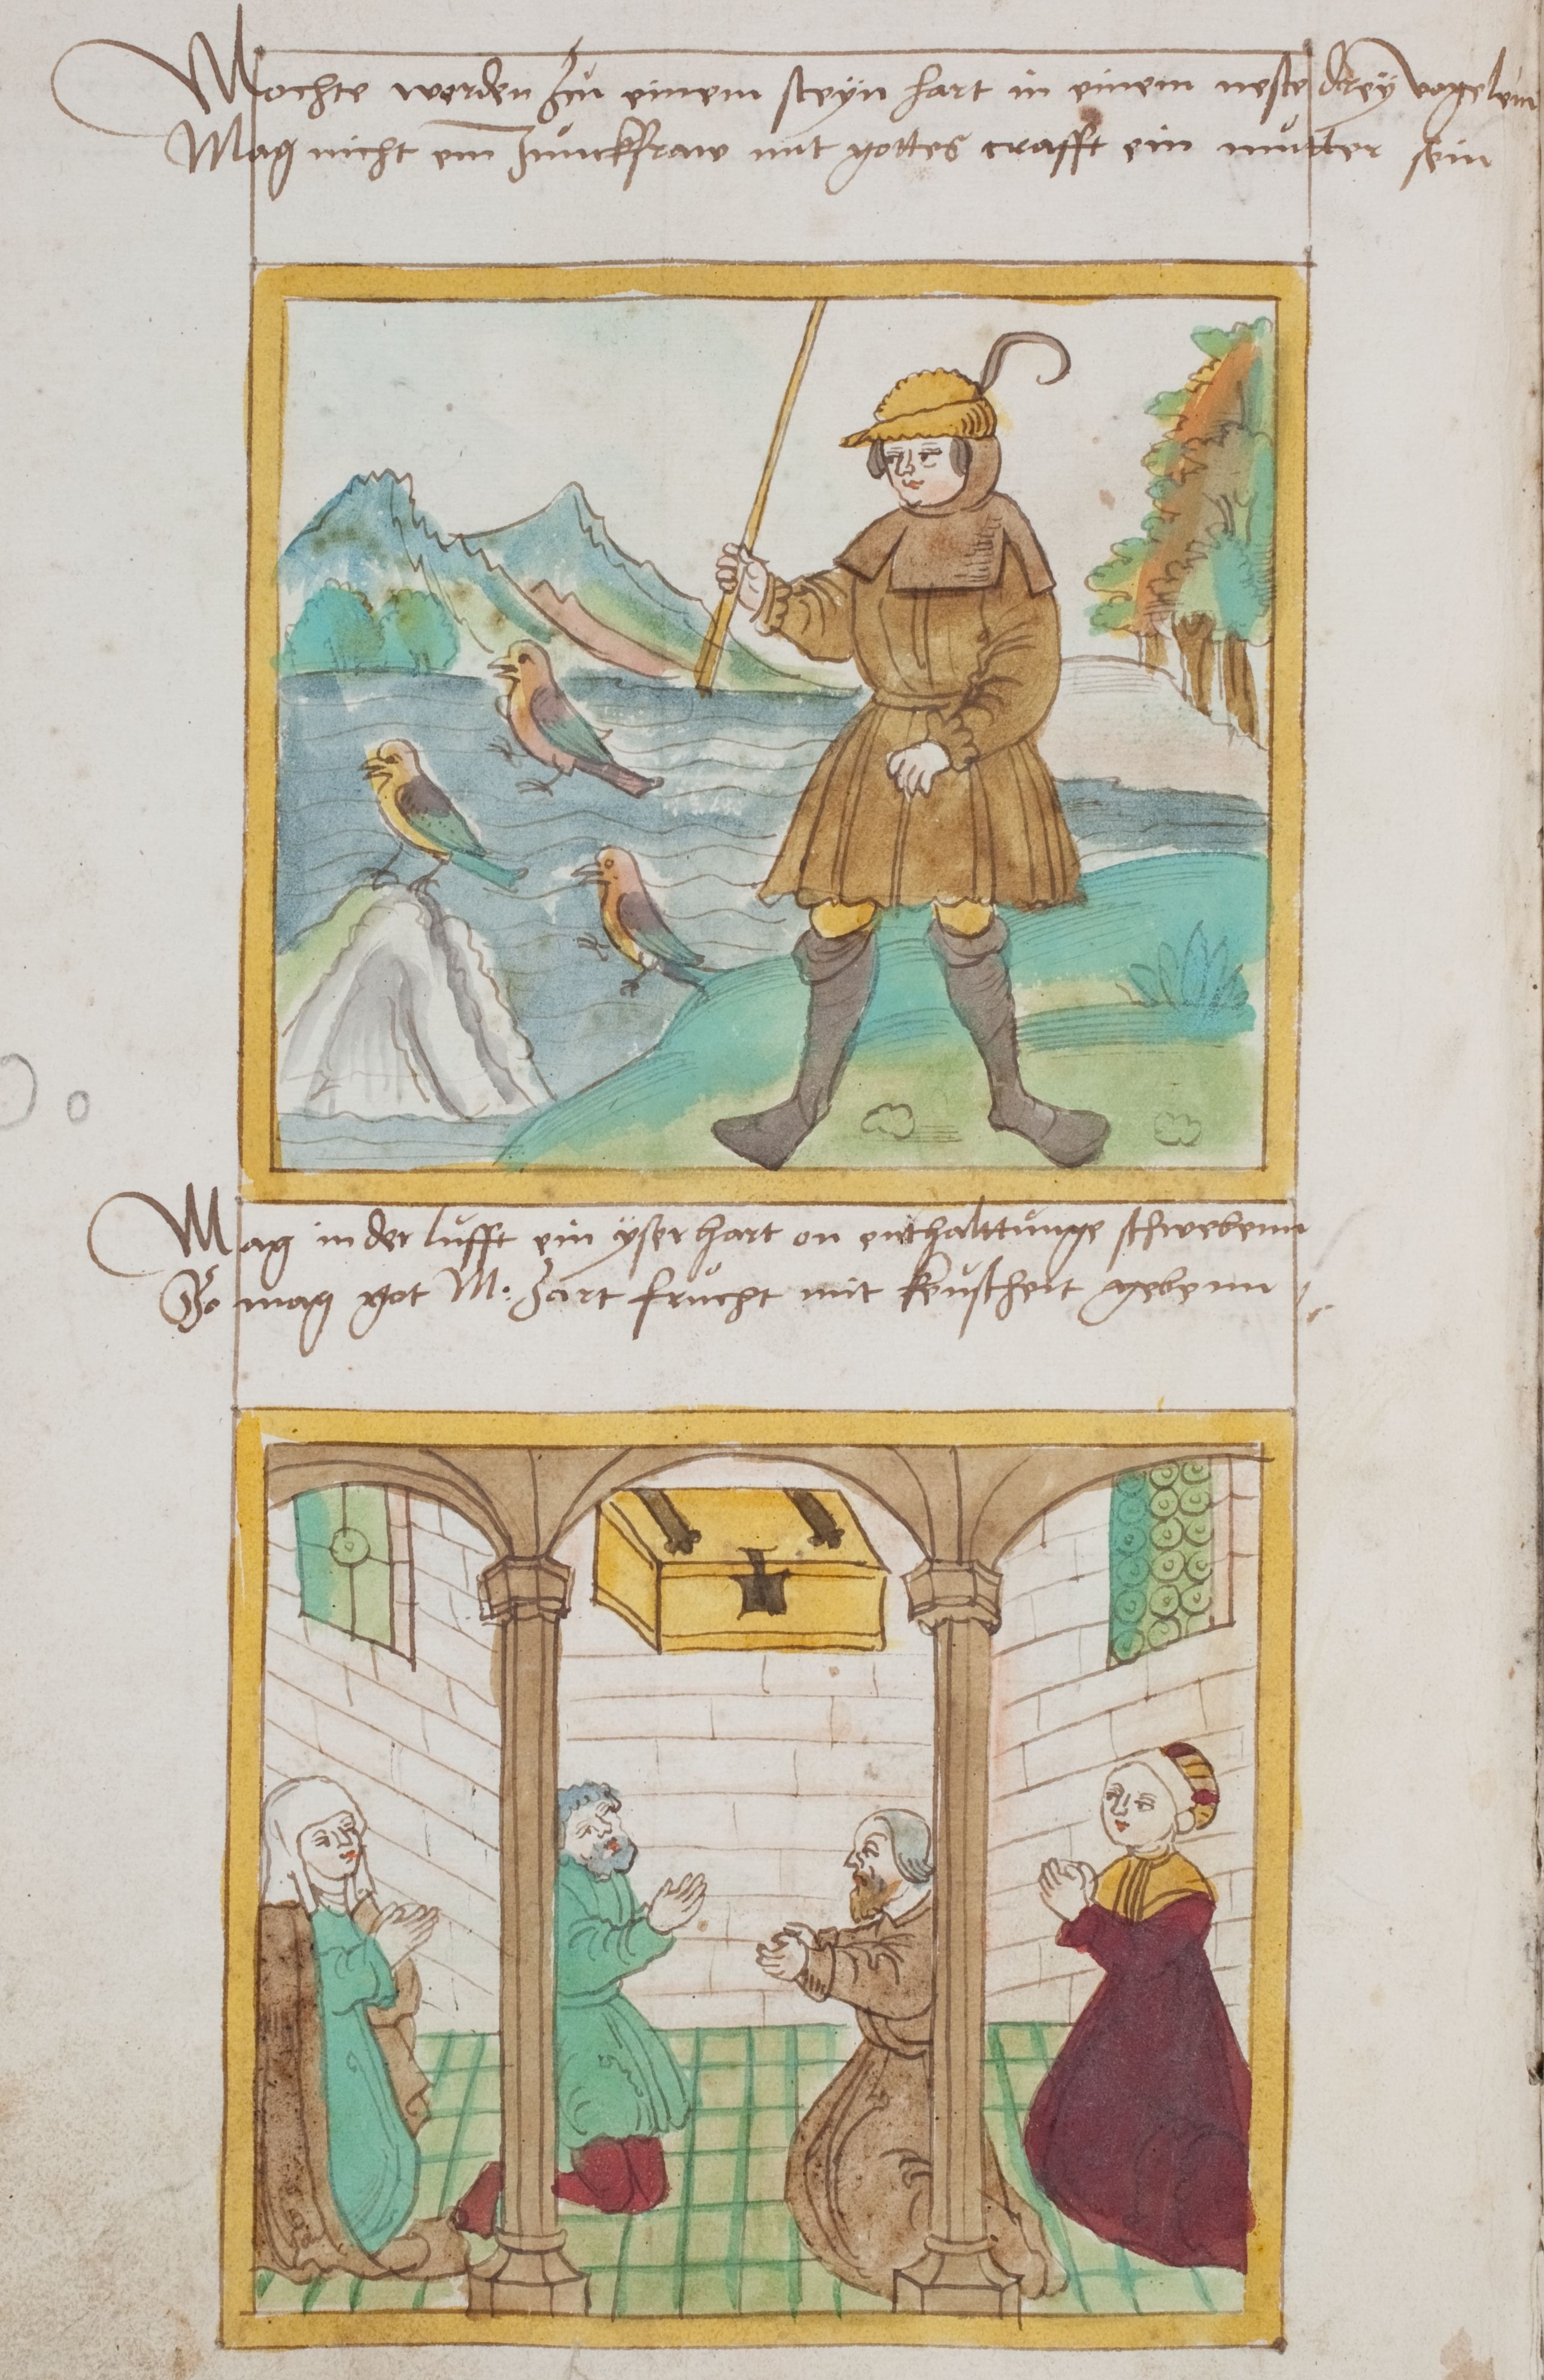 Mochte werden zu einem steyn hart in einem neste drey vogelein
Mag nicht ein Junckfraw mit gottes crafft ein mutter sein
Mag in der lufft ein yser hart on enthalttunge schwebenn
So mag got M: zart frucht mit keuscheit gebenn